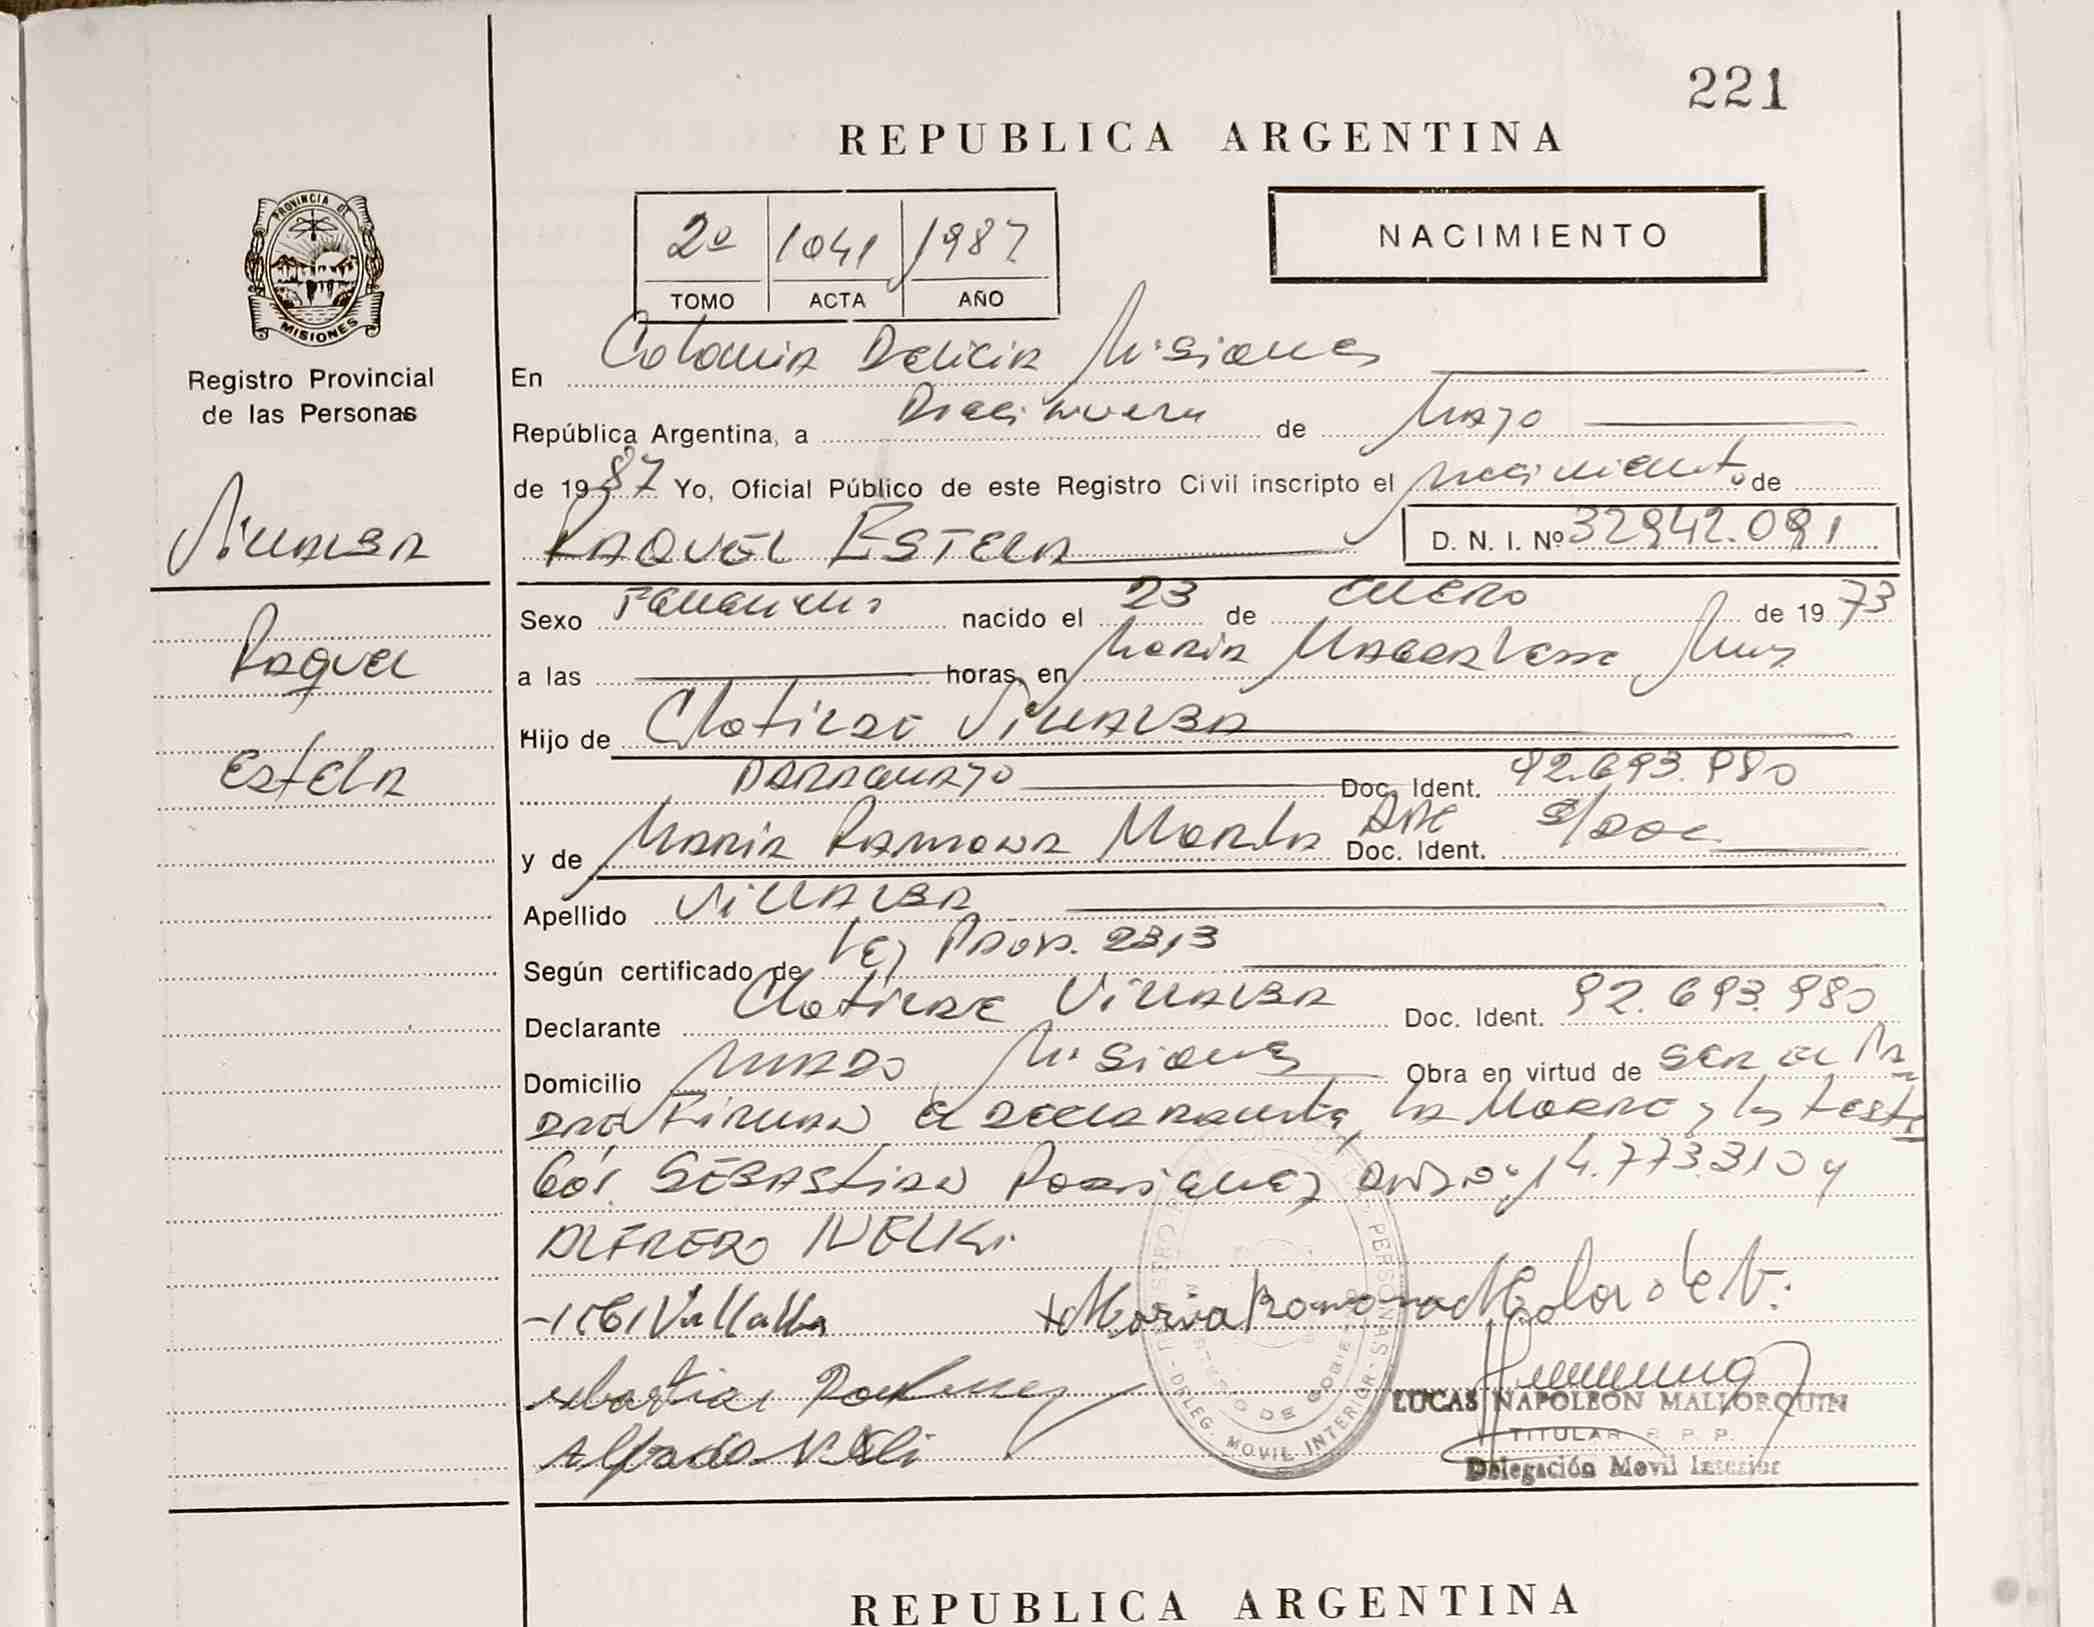 221
REPUBLICA ARGENTINA
PROVINCIA DE
MISIONES
Registro Provincial
de las Personas
2º 1041 1987
TOMO ACTA AÑO
NACIMIENTO
En Colonia Delicia Misiones
República Argentina, a Diecinueve de Mayo
de 1987 Yo, Oficial Público de este Registro Civil inscripto el nacimiento de
Villalba
Raquel Estela
D. N. I. Nº 32942.091
Raquel
Estela
Sexo Femenino nacido el 23 de Enero de 1973
a las horas, en Maria Magdalena Mnes
Hijo de Clotilde Villalba
Paraguayo Doc. Ident. 92.693.980
y de Maria Ramona Doc. Ident. s/Doc.
Apellido Villalba
Según certificado de Ley Prov. 2313
Declarante Clotilde Villalba Doc. Ident. 92.693.980
Domicilio Misiones Obra en virtud de ser el Pa
dre Firman el declarante, la Madre y los testi
gos Sebastian Rodriguez 14.773.310 y
Alfredo
Villalba
Maria Ramona de V.
Sebastian
Alfredo
LUCAS NAPOLEON MALLORQUIN
TITULAR R. P. P.
Delegación Movil Interior
PERSONAS - DELEG. MOVIL INTERIOR -
REPUBLICA ARGENTINA